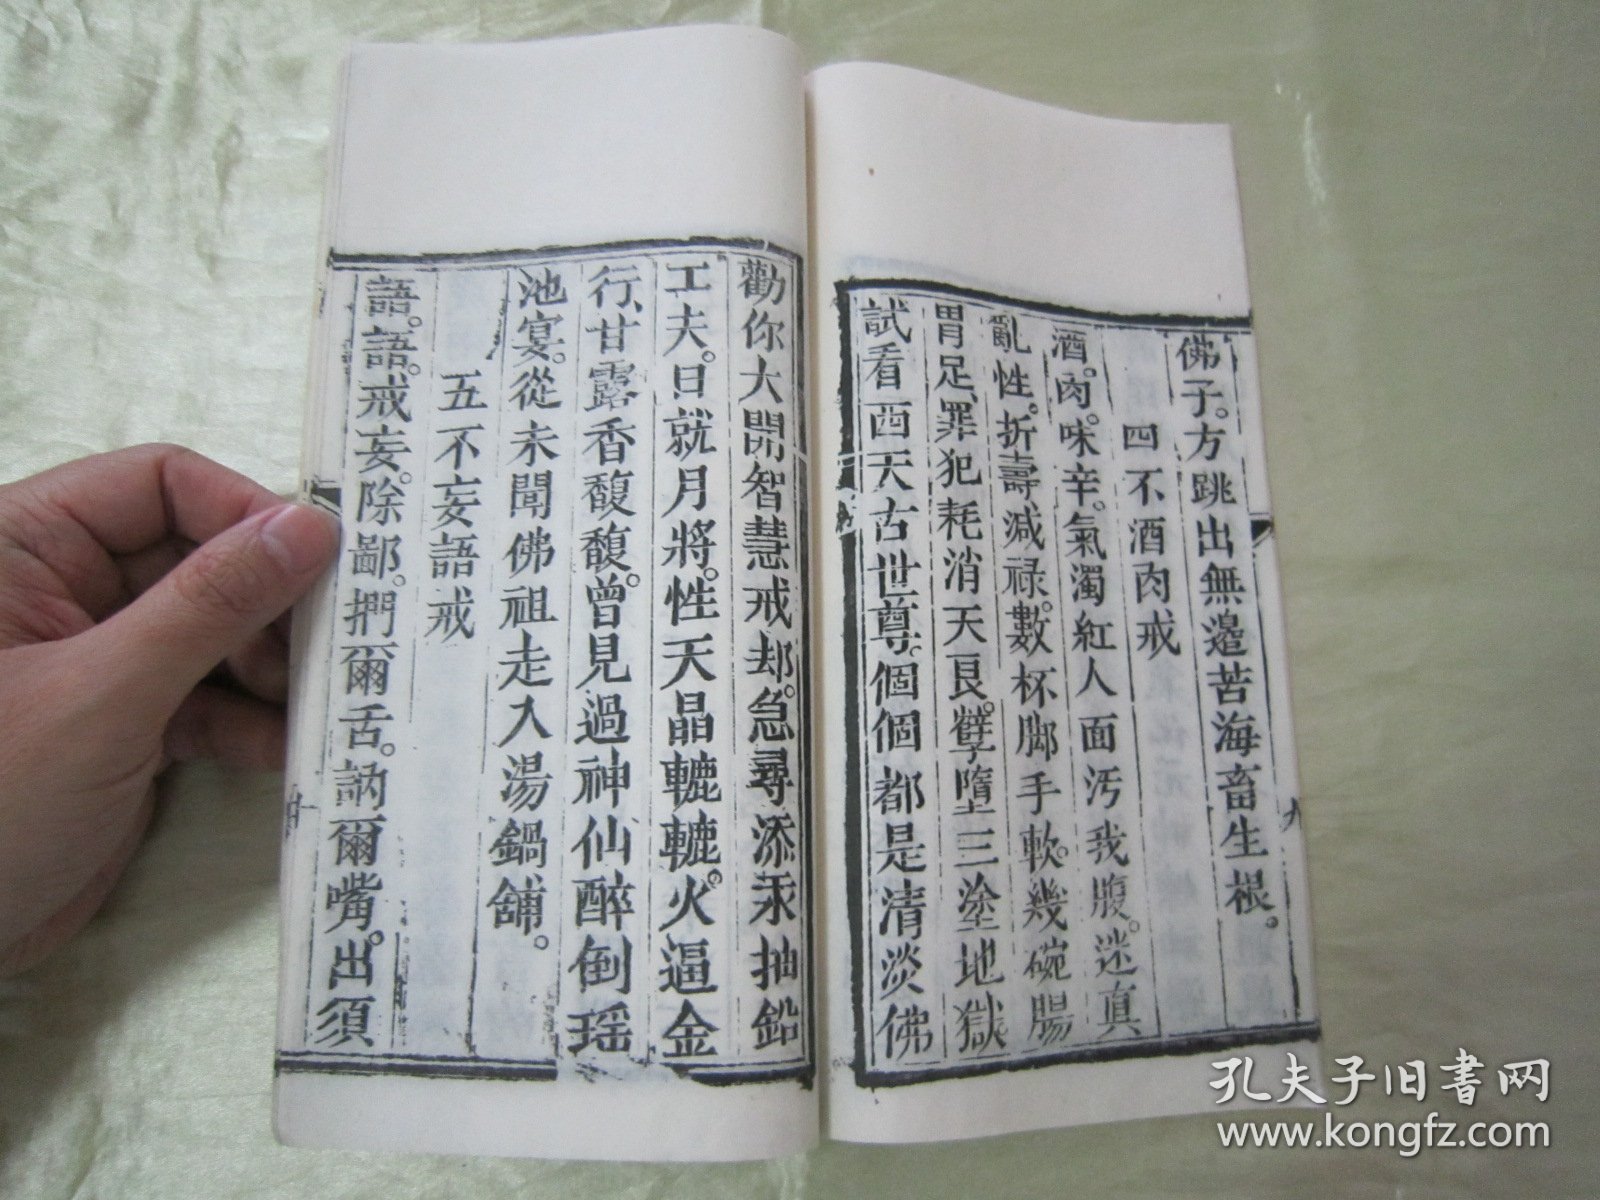 佛子。方跳出無邊苦海畜生根。
四不酒肉戒
酒。肉。味辛。氣濁紅人面汚我腹。迷真
亂性。折壽減禄。數杯脚手軟。幾碗腸
胃足、罪犯耗消天艮。孽墮三塗地獄
試看西天古世尊。個個都是清淡佛
九
勸你大開智慧戒却。急尋添汞抽鉛
工夫。日就月將。性天晶轆轆。火逼金
行、甘露香馥馥。曾見過神仙醉倒瑶
池宴。從未聞佛祖走入湯鍋舖。
五不妄語戒
語。語。戒妄。除鄙。捫爾舌。訥爾嘴。出須
孔夫子旧書网
www.kongfz.com